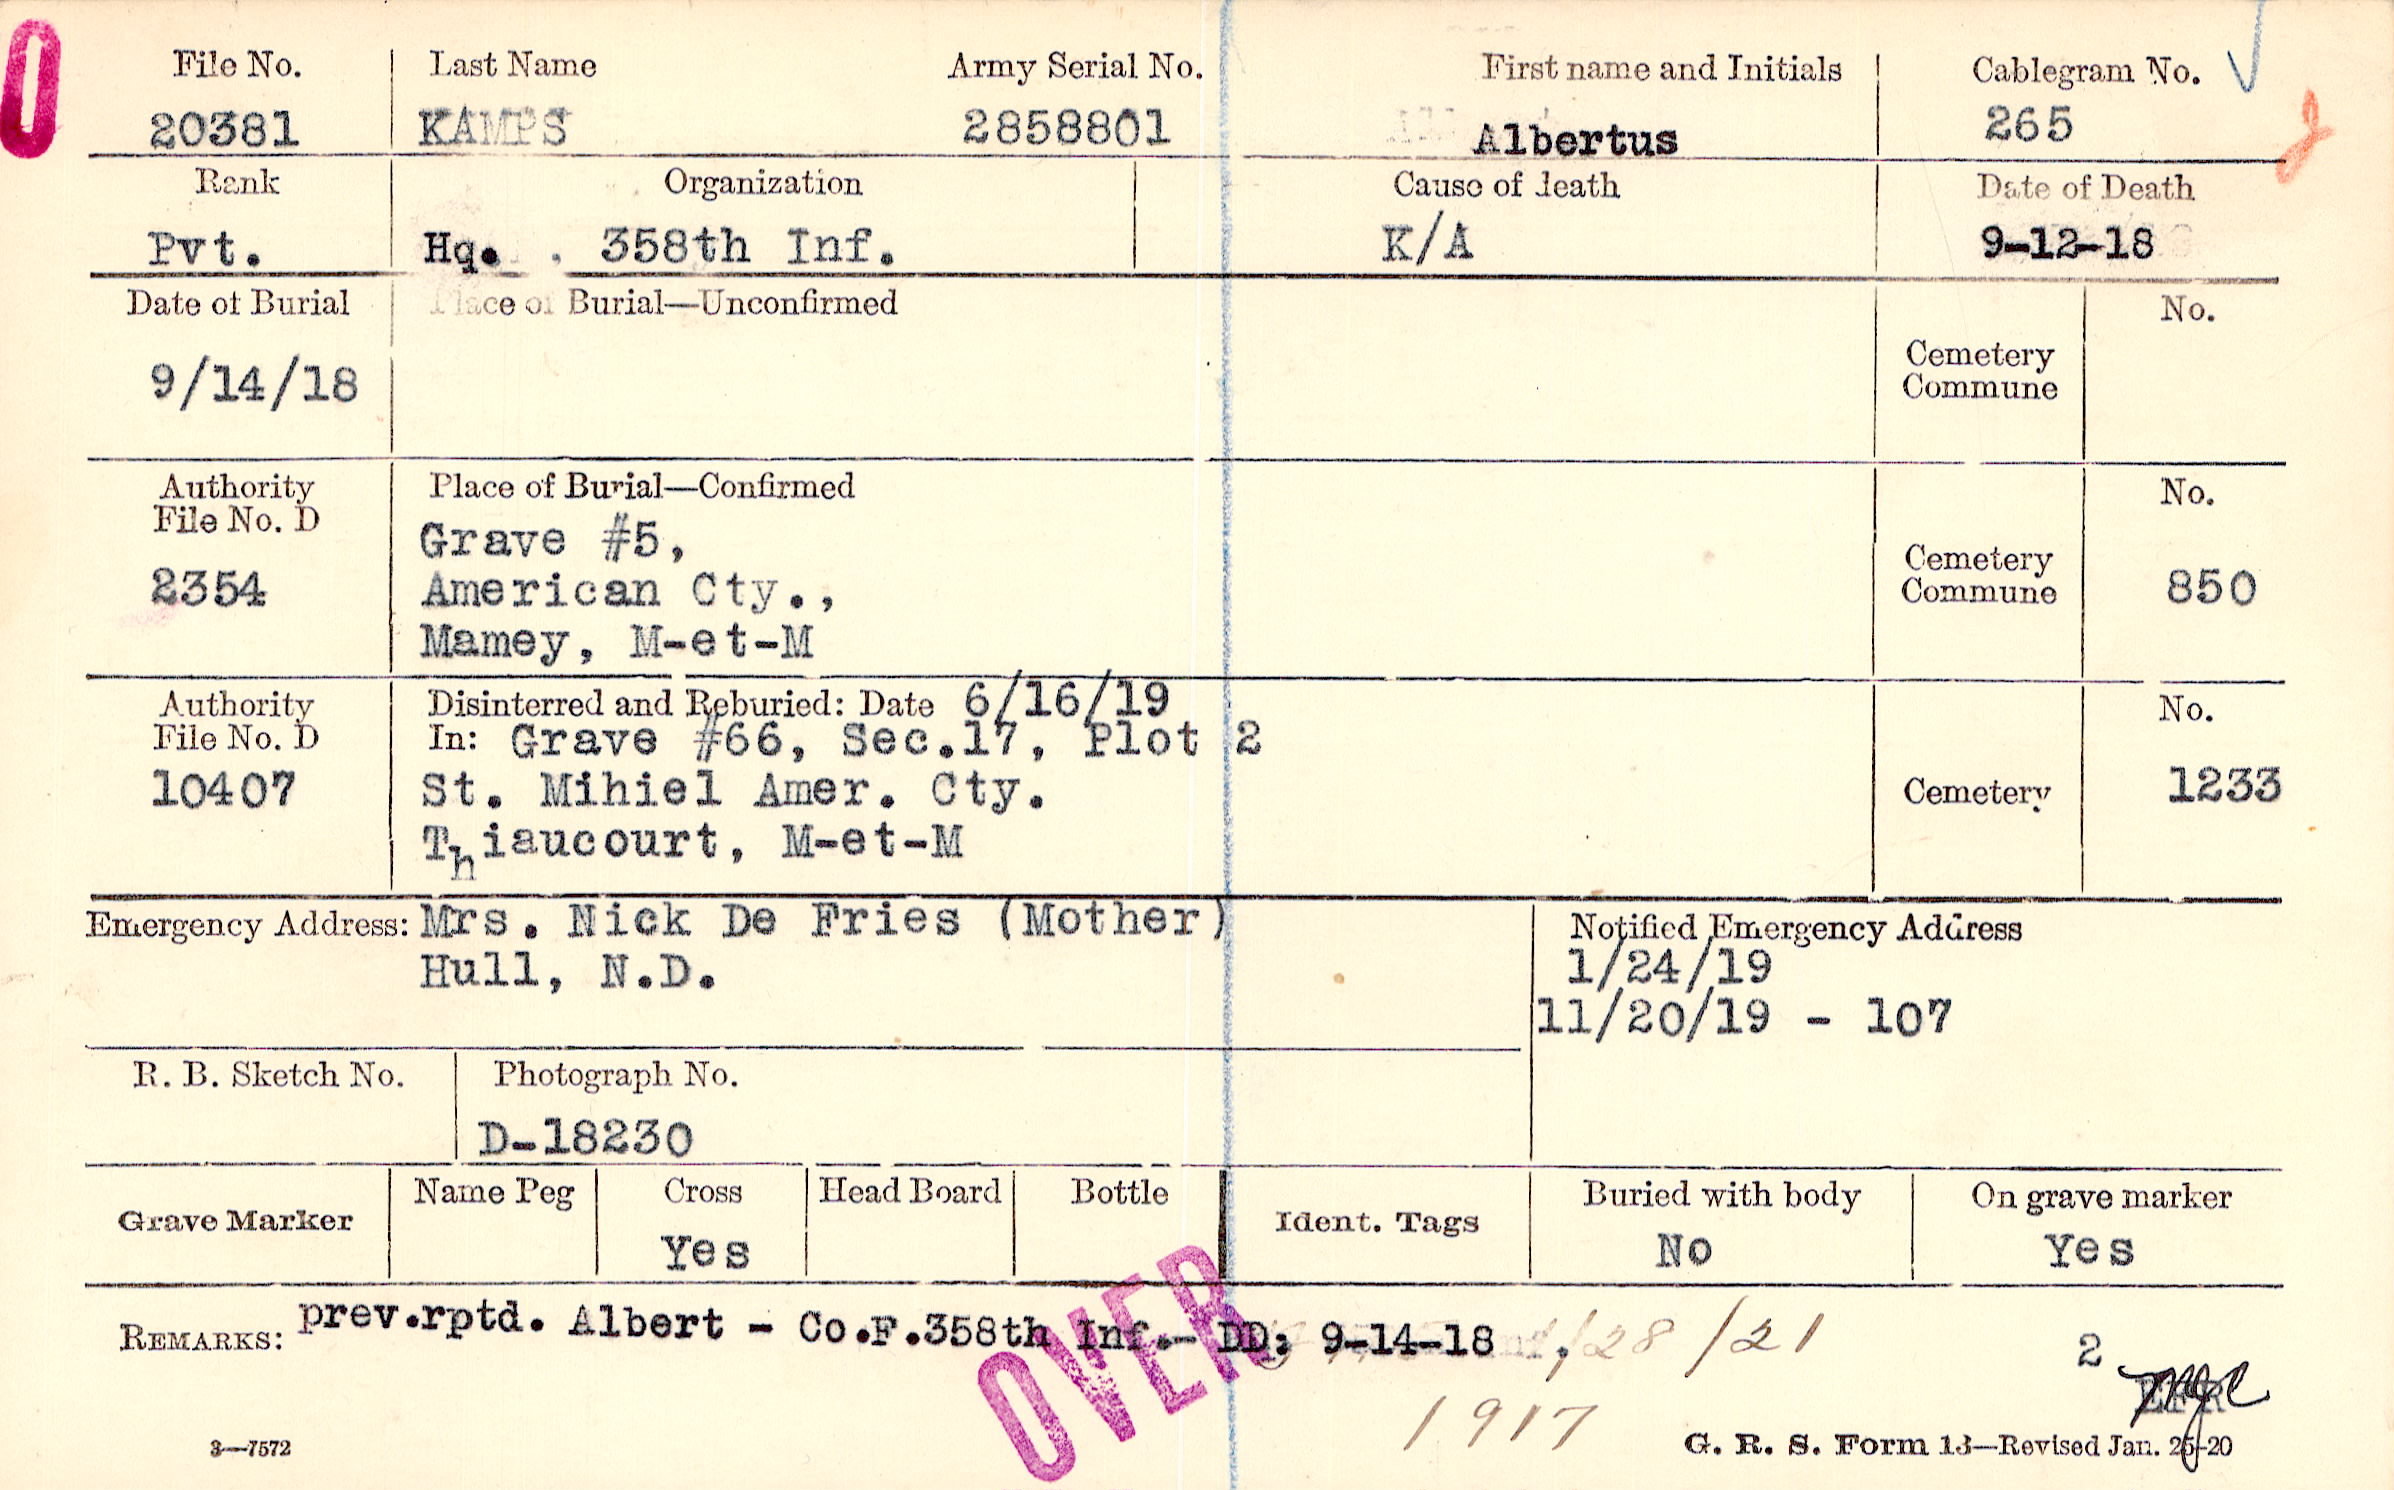 File No. Last Name Army Serial No. First name and Initials Cablegram No.
20381 KAMPS 2858801 Albertus 265
Rank Organization Cause of death Date of Death
Pvt. Hq. 358th Inf. K/A 9-12-18
Date of Burial Place of Burial—Unconfirmed No.
9/14/18
Cemetery
Commune
Authority Place of Burial—Confirmed No.
File No. D
Grave #5,
2354 American Cty., Cemetery
Commune 850
Mamey, M-et-M
Authority Disinterred and Reburied: Date 6/16/19 No.
File No. D In: Grave #66, Sec.17, Plot 2
10407 St. Mihiel Amer. Cty. Cemetery 1233
Thiaucourt, M-et-M
Emergency Address: Mrs. Nick De Fries (Mother) Notified Emergency Address
Hull, N.D. 1/24/19
11/20/19 - 107
R. B. Sketch No. Photograph No.
D-18230
Grave Marker Name Peg Cross Head Board Bottle Ident. Tags Buried with body On grave marker
Yes No Yes
REMARKS: prev.rptd. Albert - Co.F.358th Inf.- DD; 9-14-18 /28/21 2
OVER
1917
3—7572 G. R. S. Form 13—Revised Jan. 26-20